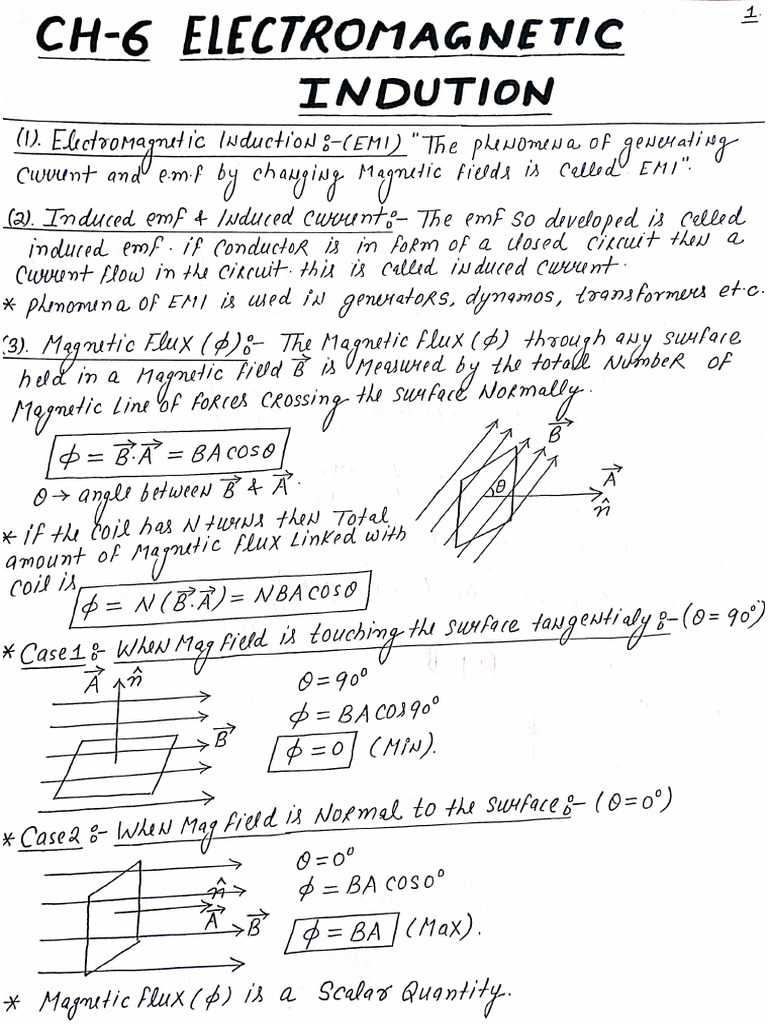 1.
CH-6 ELECTROMAGNETIC
INDUTION
(1). Electromagnetic Induction:-(EMI) "The phenomena of generating
current and e.m.f by changing Magnetic fields is called EMI".
(2). Induced emf & Induced Current:- The emf so developed is called
induced emf. if conductor is in form of a closed circuit then a
current flow in the circuit. this is called induced current.
* phenomena of EMI is used in generators, dynamos, transformers etc.
(3). Magnetic Flux (ϕ):- The Magnetic flux (ϕ) through any surface
held in a Magnetic field B⃗ is Measured by the totall Number of
Magnetic Line of forces crossing the surface Normally.
ϕ = B⃗·A⃗ = BA cosθ
θ → angle between B⃗ & A⃗.
B⃗
θ
A⃗
n̂
* if the coil has N turns then Total
amount of Magnetic flux Linked with
coil is
ϕ = N(B⃗·A⃗) = NBA cosθ
* Case1:- When Mag field is touching the surface tangentialy:- (θ = 90°)
A⃗ n̂
B⃗
θ = 90°
ϕ = BA cos90°
ϕ = 0 (Min).
* Case2:- When Mag field is Normal to the surface:- (θ = 0°)
n̂
A⃗ B⃗
θ = 0°
ϕ = BA cos0°
ϕ = BA (Max).
* Magnetic flux (ϕ) is a Scalar Quantity.